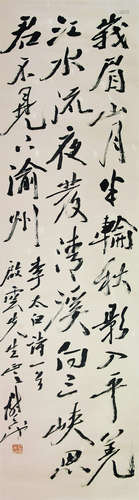 峩眉山月半輪秋影入平羌
江水流夜發清溪向三峽思
君不見下渝州 李太白詩一首
啟雲先生